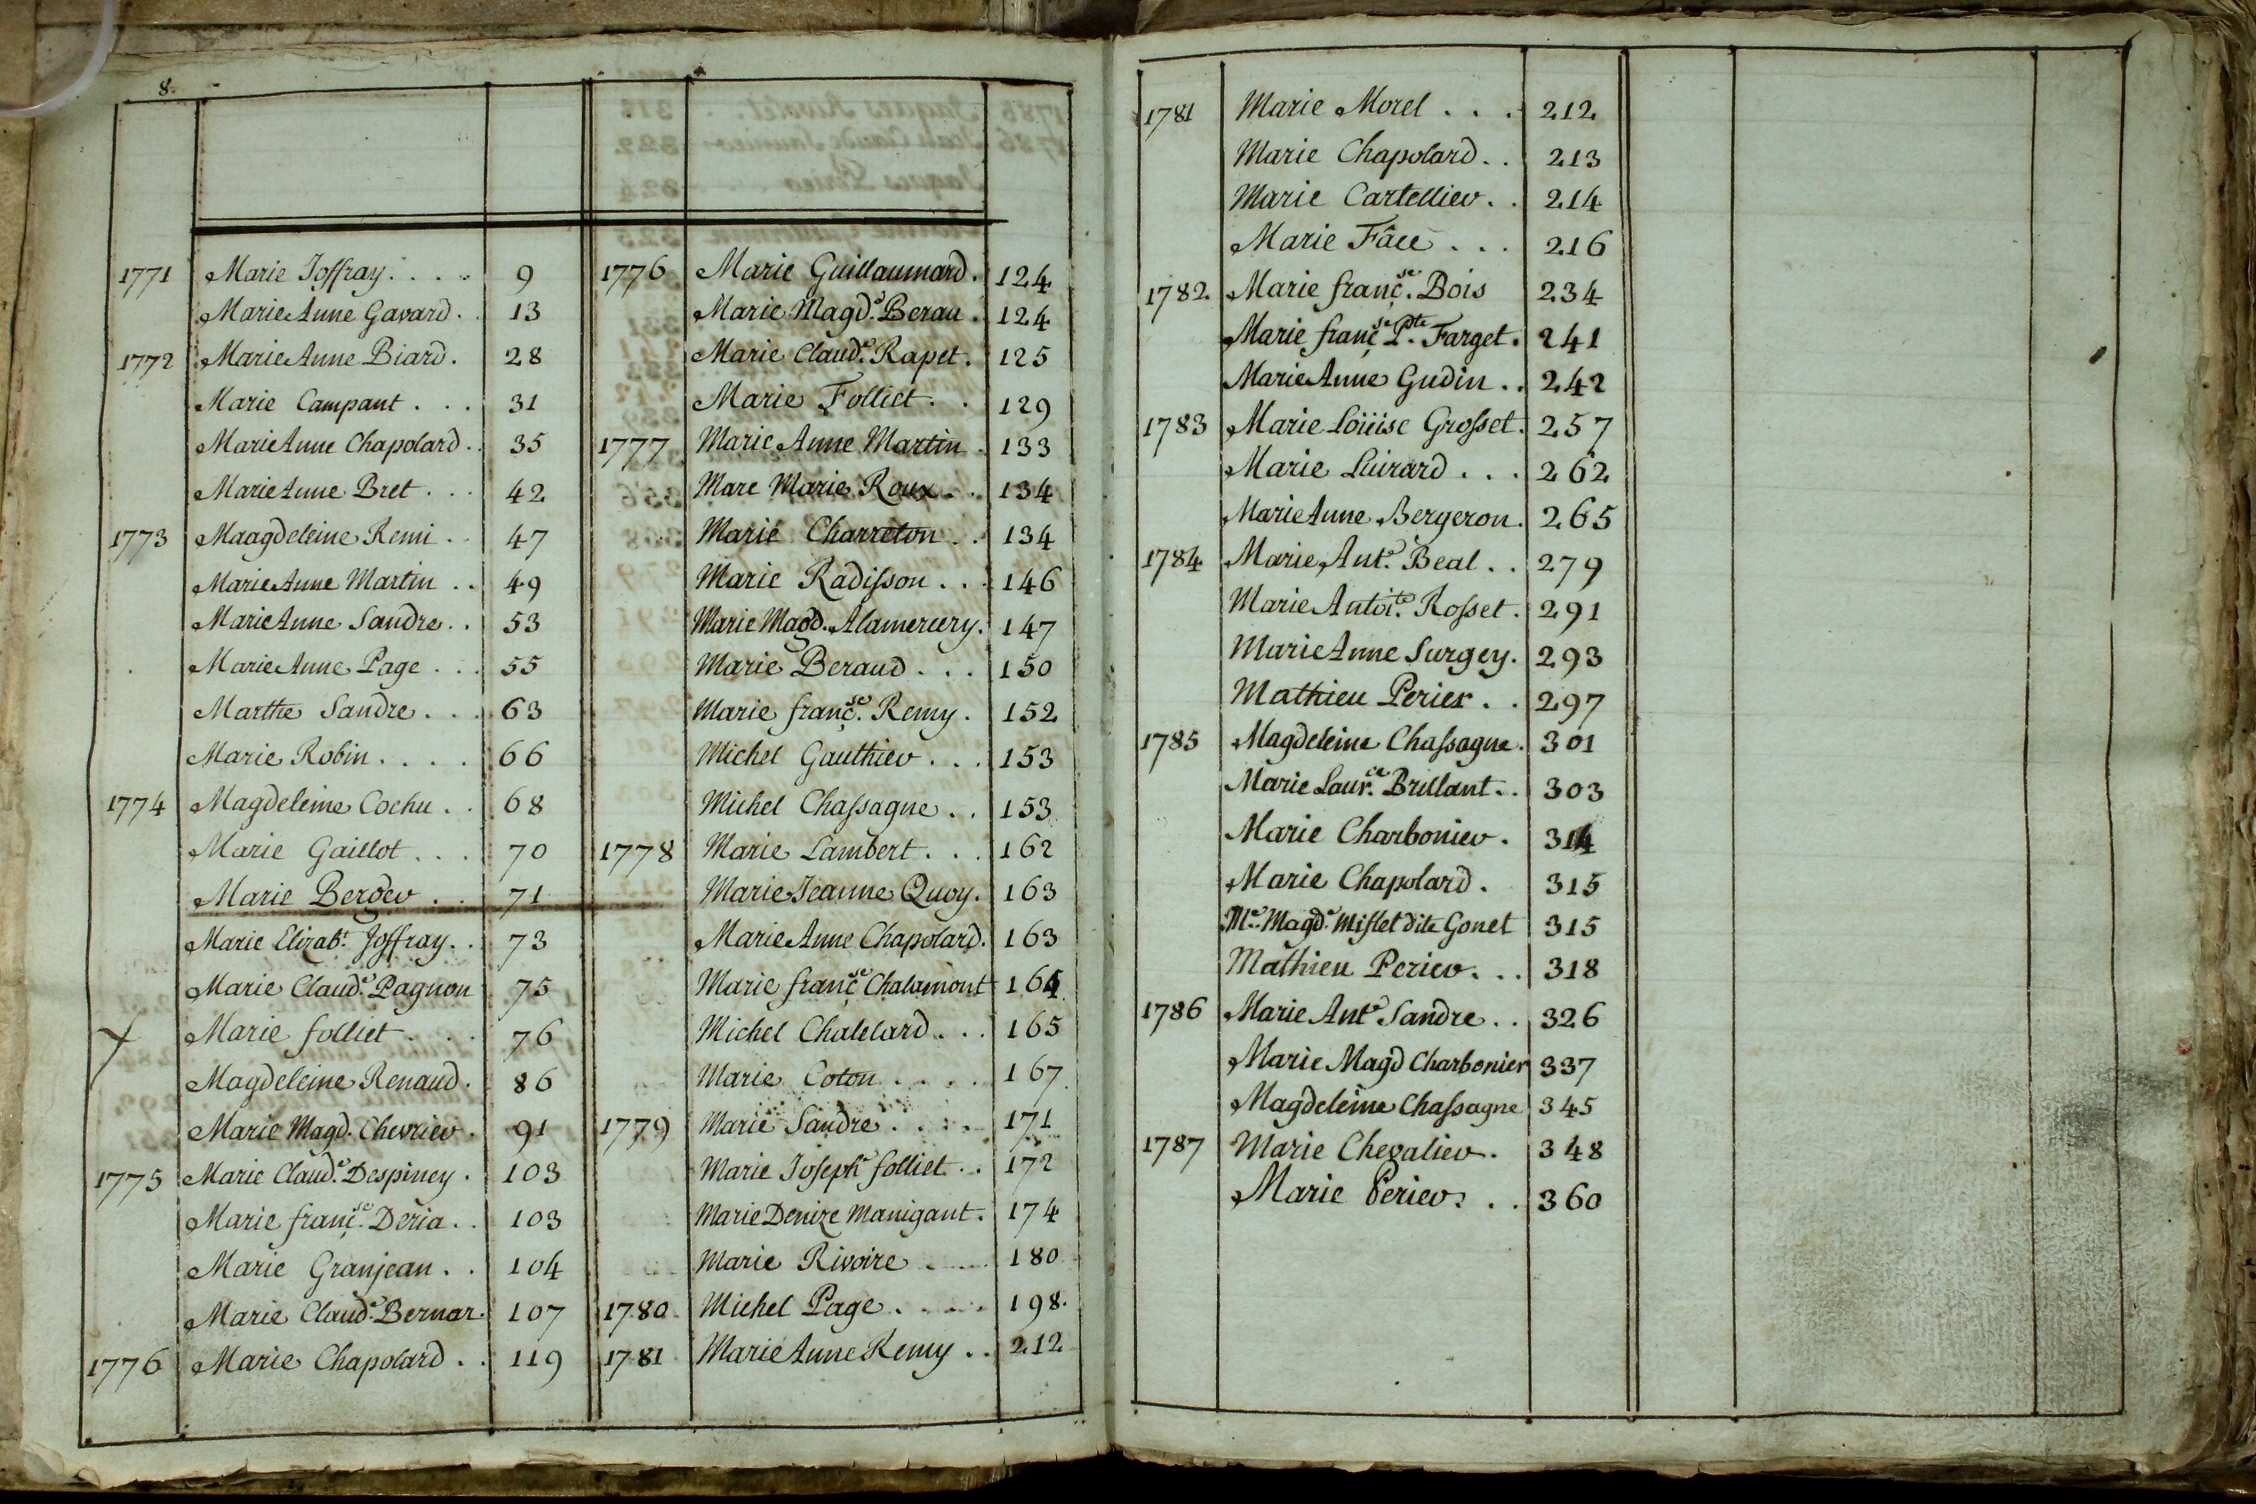 8.
1771 Marie Joffray. . . . 9
Marie Anne Gavard. . 13
1772 Marie Anne Biard. 28
Marie Campant . . . 31
Marie Anne Chapolard. . 35
Marie Anne Bret . . . 42
1773 Maagdeleine Remi . . 47
Marie Anne Martin . . 49
Marie Anne Sandre. . 53
Marie Anne Page . . . 55
Marthe Sandre. . . 63
Marie Robin. . . . 66
1774 Magdeleine Cochu. . 68
Marie Gaillot . . . 70
Marie Berger . . 71
Marie Elizabt. Joffray. . 73
Marie Claude. Pagnon 75
Marie folliet . . . 76
Magdeleine Renaud. 86
Marie Magd. Chevrier. 91
1775 Marie Claude. Despiney . 103
Marie françse. Deria. . 103
Marie Granjean. . 104
Marie Claude. Bernar. 107
1776 Marie Chapolard . . 119
1776 Marie Guillaumard. 124
Marie Magde. Berau . 124
Marie Claude. Rapet. 125
Marie Folliet. . 129
1777 Marie Anne Martin . 133
Marc Marie Roux. . 134
Marie Charreton . . 134
Marie Radisson . . . 146
Marie Magd. Alamercery. 147
Marie Beraud . . . 150
Marie françse. Remy. 152
Michel Gauthier . . . 153
Michel Chassagne . . 153
1778 Marie Lambert. . . 162
Marie Jeanne Quoy. 163
Marie Anne Chapolard. 163
Marie françse Chalamont 164
Michel Chalelard. . . 165
Marie Coton . . . . 167
1779 Marie Sandre . . . . 171
Marie Josephe folliet. . 172
Marie Denize Manigant. 174
Marie Rivoire . . . . 180
1780 Michel Page. . . . . 198.
1781 Marie Anne Remy . . 212
1781 Marie Morel . . . 212
Marie Chapolard. . 213
Marie Cartellier. . 214
Marie Fâce . . . 216
1782 Marie françse. Bois 234
Marie françse Pte. Farget. 241
Marie Anne Gudin . . 242
1783 Marie Loüise Grosset. 257
Marie Luirard . . . 262
Marie Anne Bergeron. 265
1784 Marie Ante. Beal . . 279
Marie Antoite. Rosset. 291
Marie Anne Surgey. 293
Mathieu Perier . . 297
1785 Magdeleine Chassagne. 301
Marie Laurce. Brillant. . 303
Marie Charbonier . 314
Marie Chapolard . 315
Me. Magde. Mislet dite Gonet 315
Mathieu Perier. . . 318
1786 Marie Ante Sandre . . 326
Marie Magd Charbonier 337
Magdeleine Chassagne 345
1787 Marie Chevalier. 348
Marie Perier. . . 360